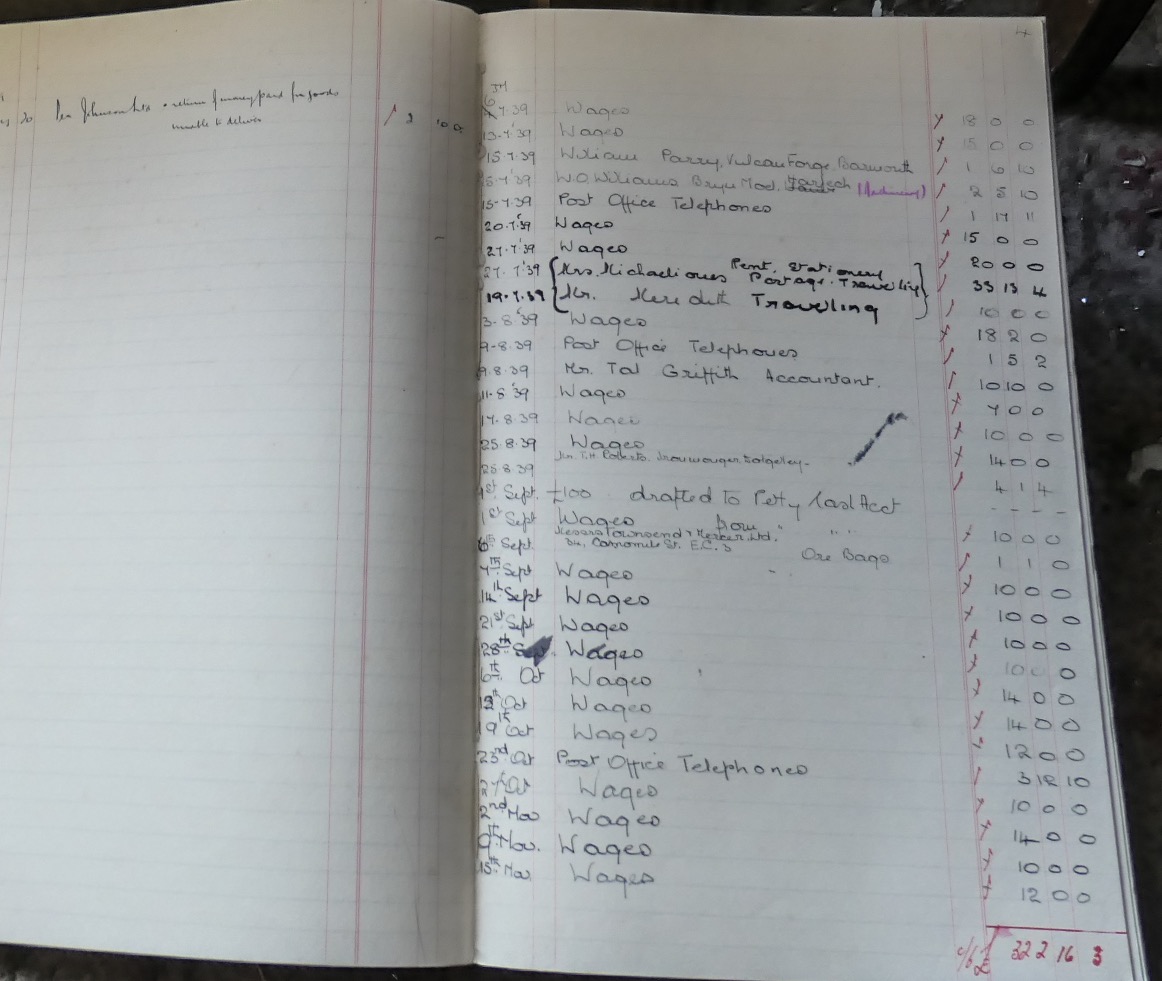 30 Per Johnson Ltd. return of money paid for goods
unable to deliver / 2 10 0
4
6.7.39 Wages x 18 0 0
13.7.39 Wages x 15 0 0
15.7.39 William Parry, Vulcan Forge, Barmouth / 1 6 10
15.7.39 W.O. Williams Bryn Mod. Harlech (Machinery) / 2 5 10
15.7.39 Post Office Telephones / 1 17 11
20.7.39 Wages x 15 0 0
27.7.39 Wages x 20 0 0
27.7.39 Mrs. Michaeliones Rent, Stationery
Postage. Travelling / 33 13 4
19.7.39 Mr. Meredith Traveling 10 0 0
3.8.39 Wages x 18 2 0
9.8.39 Post Office Telephones / 1 5 2
9.8.39 Mr. Tal Griffith Accountant. / 10 10 0
11.8.39 Wages x 7 0 0
17.8.39 Wages x 10 0 0
25.8.39 Wages x 14 0 0
25.8.39 T.H. Roberts. Ironmonger. Dolgelley - / 4 1 4
1st Sept. £100 drafted to Petty Cash Acct - - - -
1st Sept Wages from " " " x 10 0 0
6th Sept. Messrs Townsend & Mercer Ltd.
34, Camomile St. E.C.3 Ore Bags / 1 1 0
7th Sept Wages x 10 0 0
14th Sept Wages x 10 0 0
21st Sept Wages x 10 0 0
28th Sept. Wages x 10 0 0
6th Oct Wages x 14 0 0
12th Oct Wages x 14 0 0
19th Oct Wages x 12 0 0
23rd Oct Post Office Telephones / 3 12 10
27 Oct Wages x 10 0 0
2nd Nov Wages x 14 0 0
9th Nov. Wages x 10 0 0
15th Nov. Wages x 12 0 0
c/f £ 322 16 3